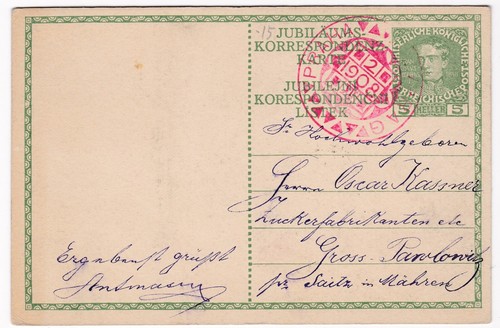 -15
JUBILÄUMS-
KORRESPONDENZ-
KARTE
JUBILEJNÍ
KORESPONDENČNÍ
LÍSTEK
KAISERLICHE KÖNIGLICHE
ÖSTERREICHISCHE POST
5 HELLER 5
PRAHA
2
1908
PRAGA
Sr Hochwohlgeboren
Herrn Oscar Kassner
Zuckerfabrikanten etc
Gross-Pawlowitz
pr Saitz in Mähren
Ergebenst grüßt